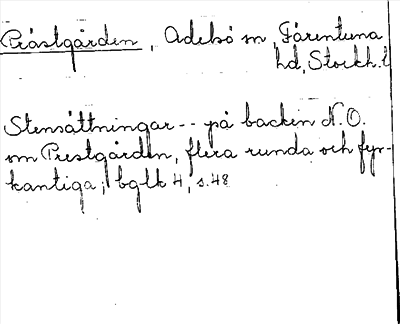 Prästgården, Adelsö sn, Färentuna
hd, Stockh. l
Stensättningar -- på backen N.O.
om Prestgården, flera runda och fyr-
kantiga; bglk 4, s. 48